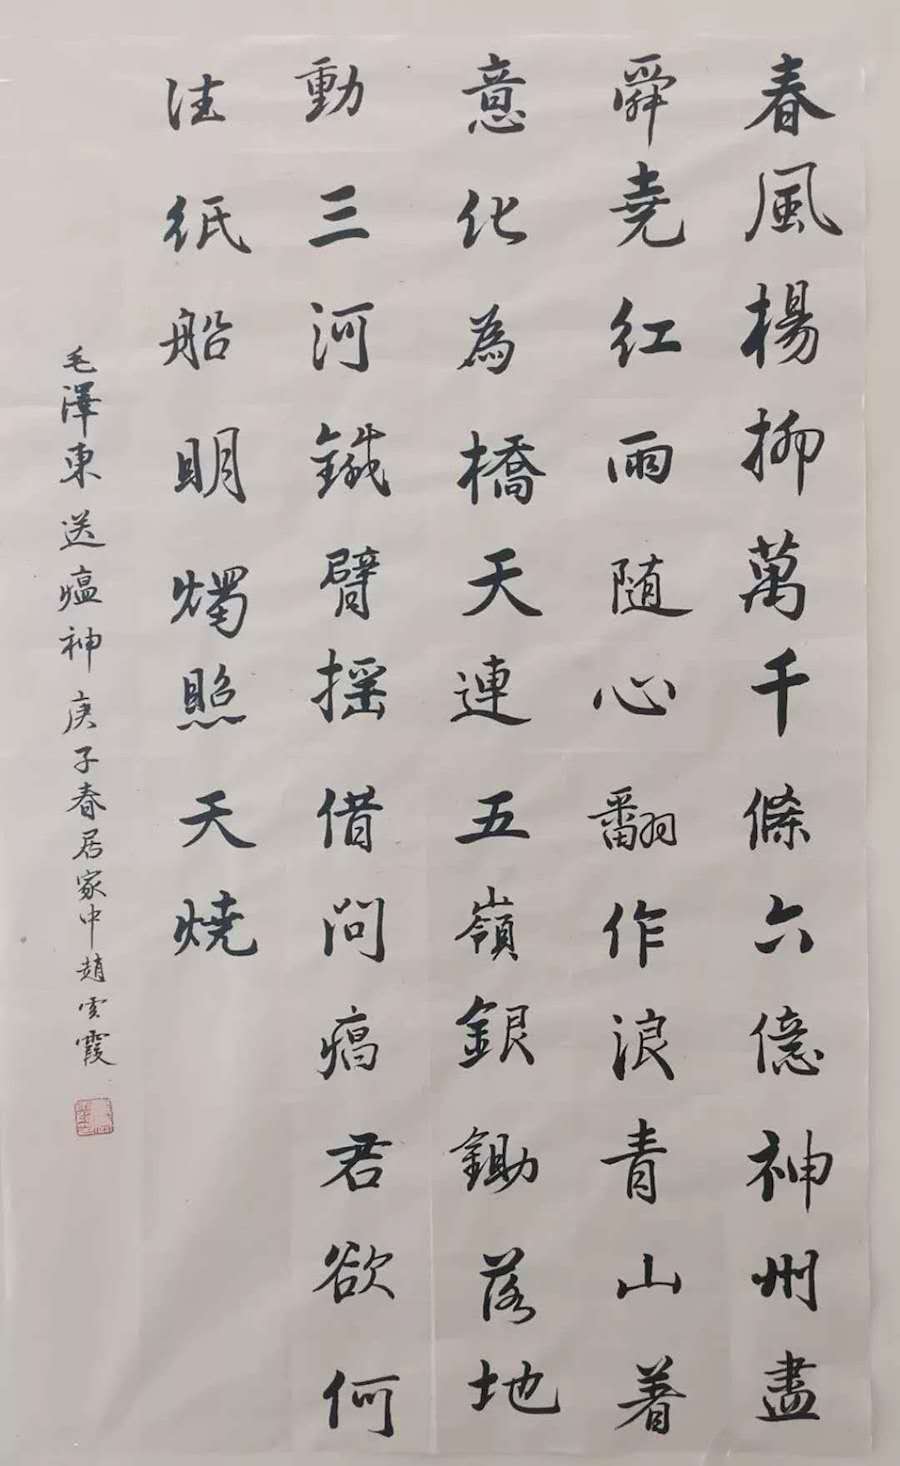 春風楊柳萬千條六億神州盡
舜堯紅雨随心翻作浪青山着
意化為橋天連五嶺銀鋤落地
動三河鐵臂摇借問瘟君欲何
往紙船明燭照天燒
毛澤東送瘟神庚子春居家中趙雲霞